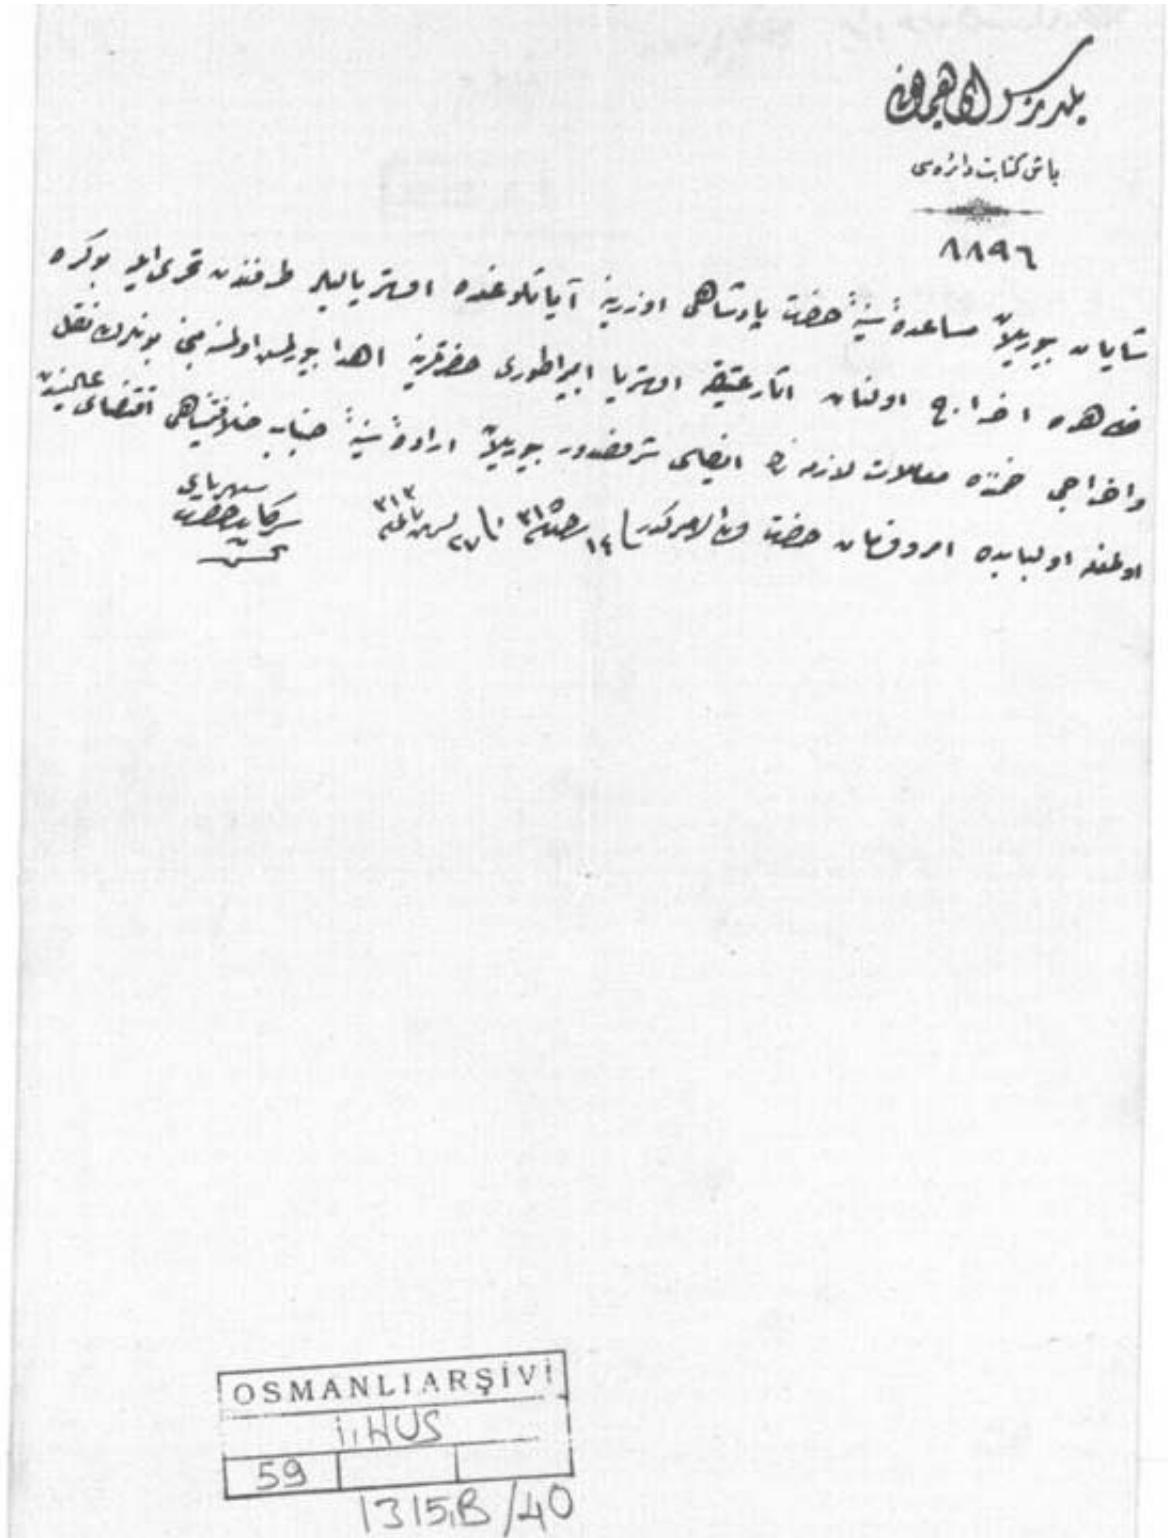 يلديز سراى همايونى
باش كتابت دائره سى
٨٨٩٦
شايان بيوريلان مساعدۀ سنيۀ حضرت پادشاهى اوزرينه آياثلوغده اوستريالير طرفندن تحرى ايله بو كره
ظاهره اخراج اولنان آثار عتيقه اوستريا ايمپراطورى حضرتلرينه اهدا بيورلمش اولمسنه مبنى بونلرك نقل
واخراجى ضمننده معاملات لازمه نك ايفاسى شرفصدور بيوريلان ارادۀ سنيۀ جناب خلافتپناهى اقتضاى عاليسندن
اولمغله اولبابده امر وفرمان حضرت ولى الامركدر فى ١٤ رجب سنه ٣١٥ فى ٢٧ تشرين ثانى سنه ٣١٣
سركاتب حضرت شهريارى
تحسين
OSMANLI ARŞİVİ
İ.HUS
59
1315.B/40